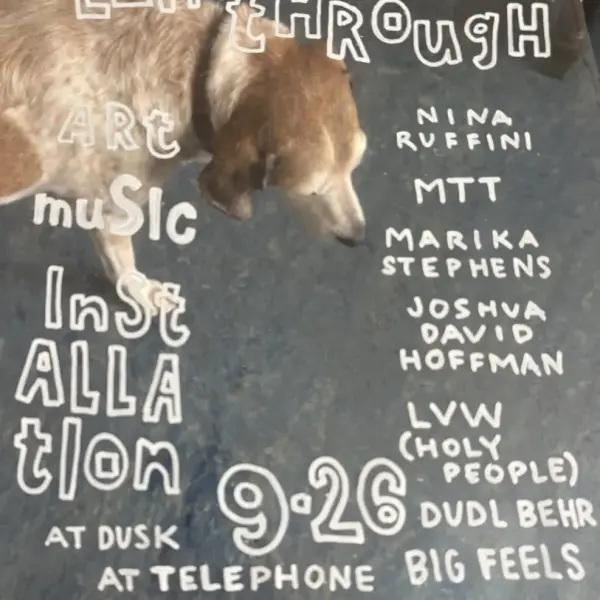 thROugH
ARt
muSIc
InSt
ALLA
tIon
NINA
RUFFINI
MTT
MARIKA
STEPHENS
JOSHUA
DAVID
HOFFMAN
LVW
(HOLY
PEOPLE)
DUDL BEHR
BIG FEELS
9.26
AT DUSK
AT TELEPHONE